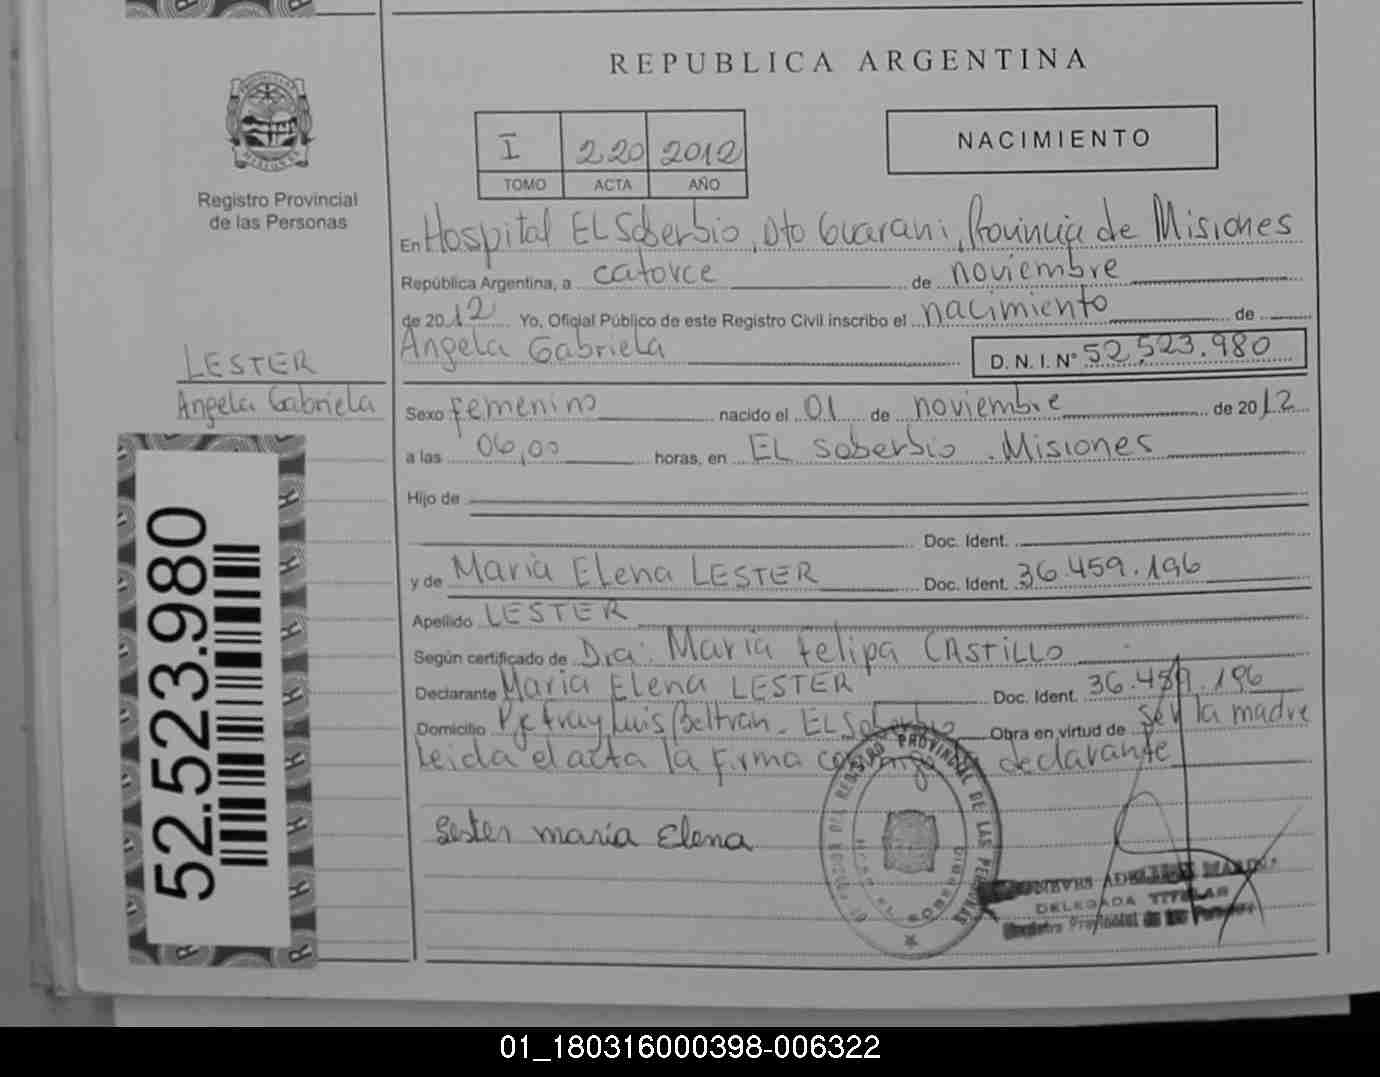 REPUBLICA ARGENTINA
Registro Provincial
de las Personas
I 220 2012
TOMO ACTA AÑO
NACIMIENTO
En Hospital EL Soberbio, Dto Guarani, Provincia de Misiones
República Argentina, a catorce de noviembre
de 2012 Yo, Oficial Público de este Registro Civil inscribo el nacimiento de
Angela Gabriela D.N.I.Nº 52.523.980
LESTER
Angela Gabriela
Sexo femenino nacido el 01 de noviembre de 2012
a las 06,00 horas, en EL Soberbio. Misiones
Hijo de
Doc. Ident.
y de Maria Elena LESTER Doc. Ident. 36.459.196
Apellido LESTER
Según certificado de Dra. Maria Felipa CASTILLO
Declarante Maria Elena LESTER Doc. Ident. 36.459.196
Domicilio Fray Luis Beltran. EL Soberbio Obra en virtud de ser la madre
leida el acta la firma conmigo declarante
Lester maria Elena
52.523.980
REGISTRO PROVINCIAL DE LAS PERSONAS
DELEGADA TITULAR
Registro Provincial de las Personas
01_180316000398-006322